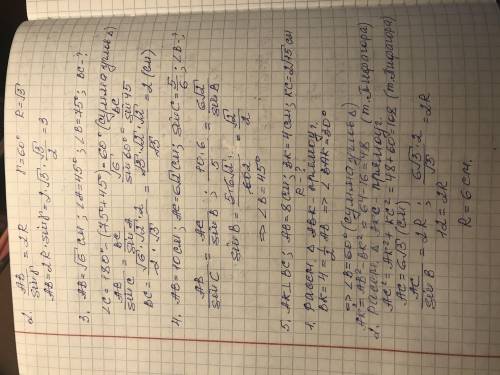 2. AB/sinγ = 2R γ=60° R=√3
AB=2R·sinγ=2·√3·√3/2=3
3. AB=√6 см; ∠A=45°; ∠B=75°; BC-?
∠C=180°-(75+45)=60° (сумма углов Δ)
AB/sinC = BC/sinA √6/sin60° = BC/sin45
BC=√6·√2·2/2·√3=√3·√2·√2/√3=2 (см)
4. AB=10 см; AC=6√2 см; sinC=5/6; ∠B-?
AB/sinC = AC/sinB; 10·6/5 = 6√2/sinB
sinB=5·6√2/60=√2/2
=> ∠B=45°
5. AK⊥BC; AB=8 см; BK=4 см; KC=2√15 см
R-?
1. рассм. Δ ABK- прямоуг.
BK=4=½AB => ∠BAK=30°
=> ∠B=60° (сумма углов Δ)
AK²=AB²-BK²=64-16=48 (т. Пифагора)
2. рассм. Δ AKC прямоуг.
AC²=AK²+KC²=48+60=108 (т. Пифагора)
AC=6√3 (см)
AC/sinB=2R; 6√3·2/√3=2R
12=2R
R=6 см.